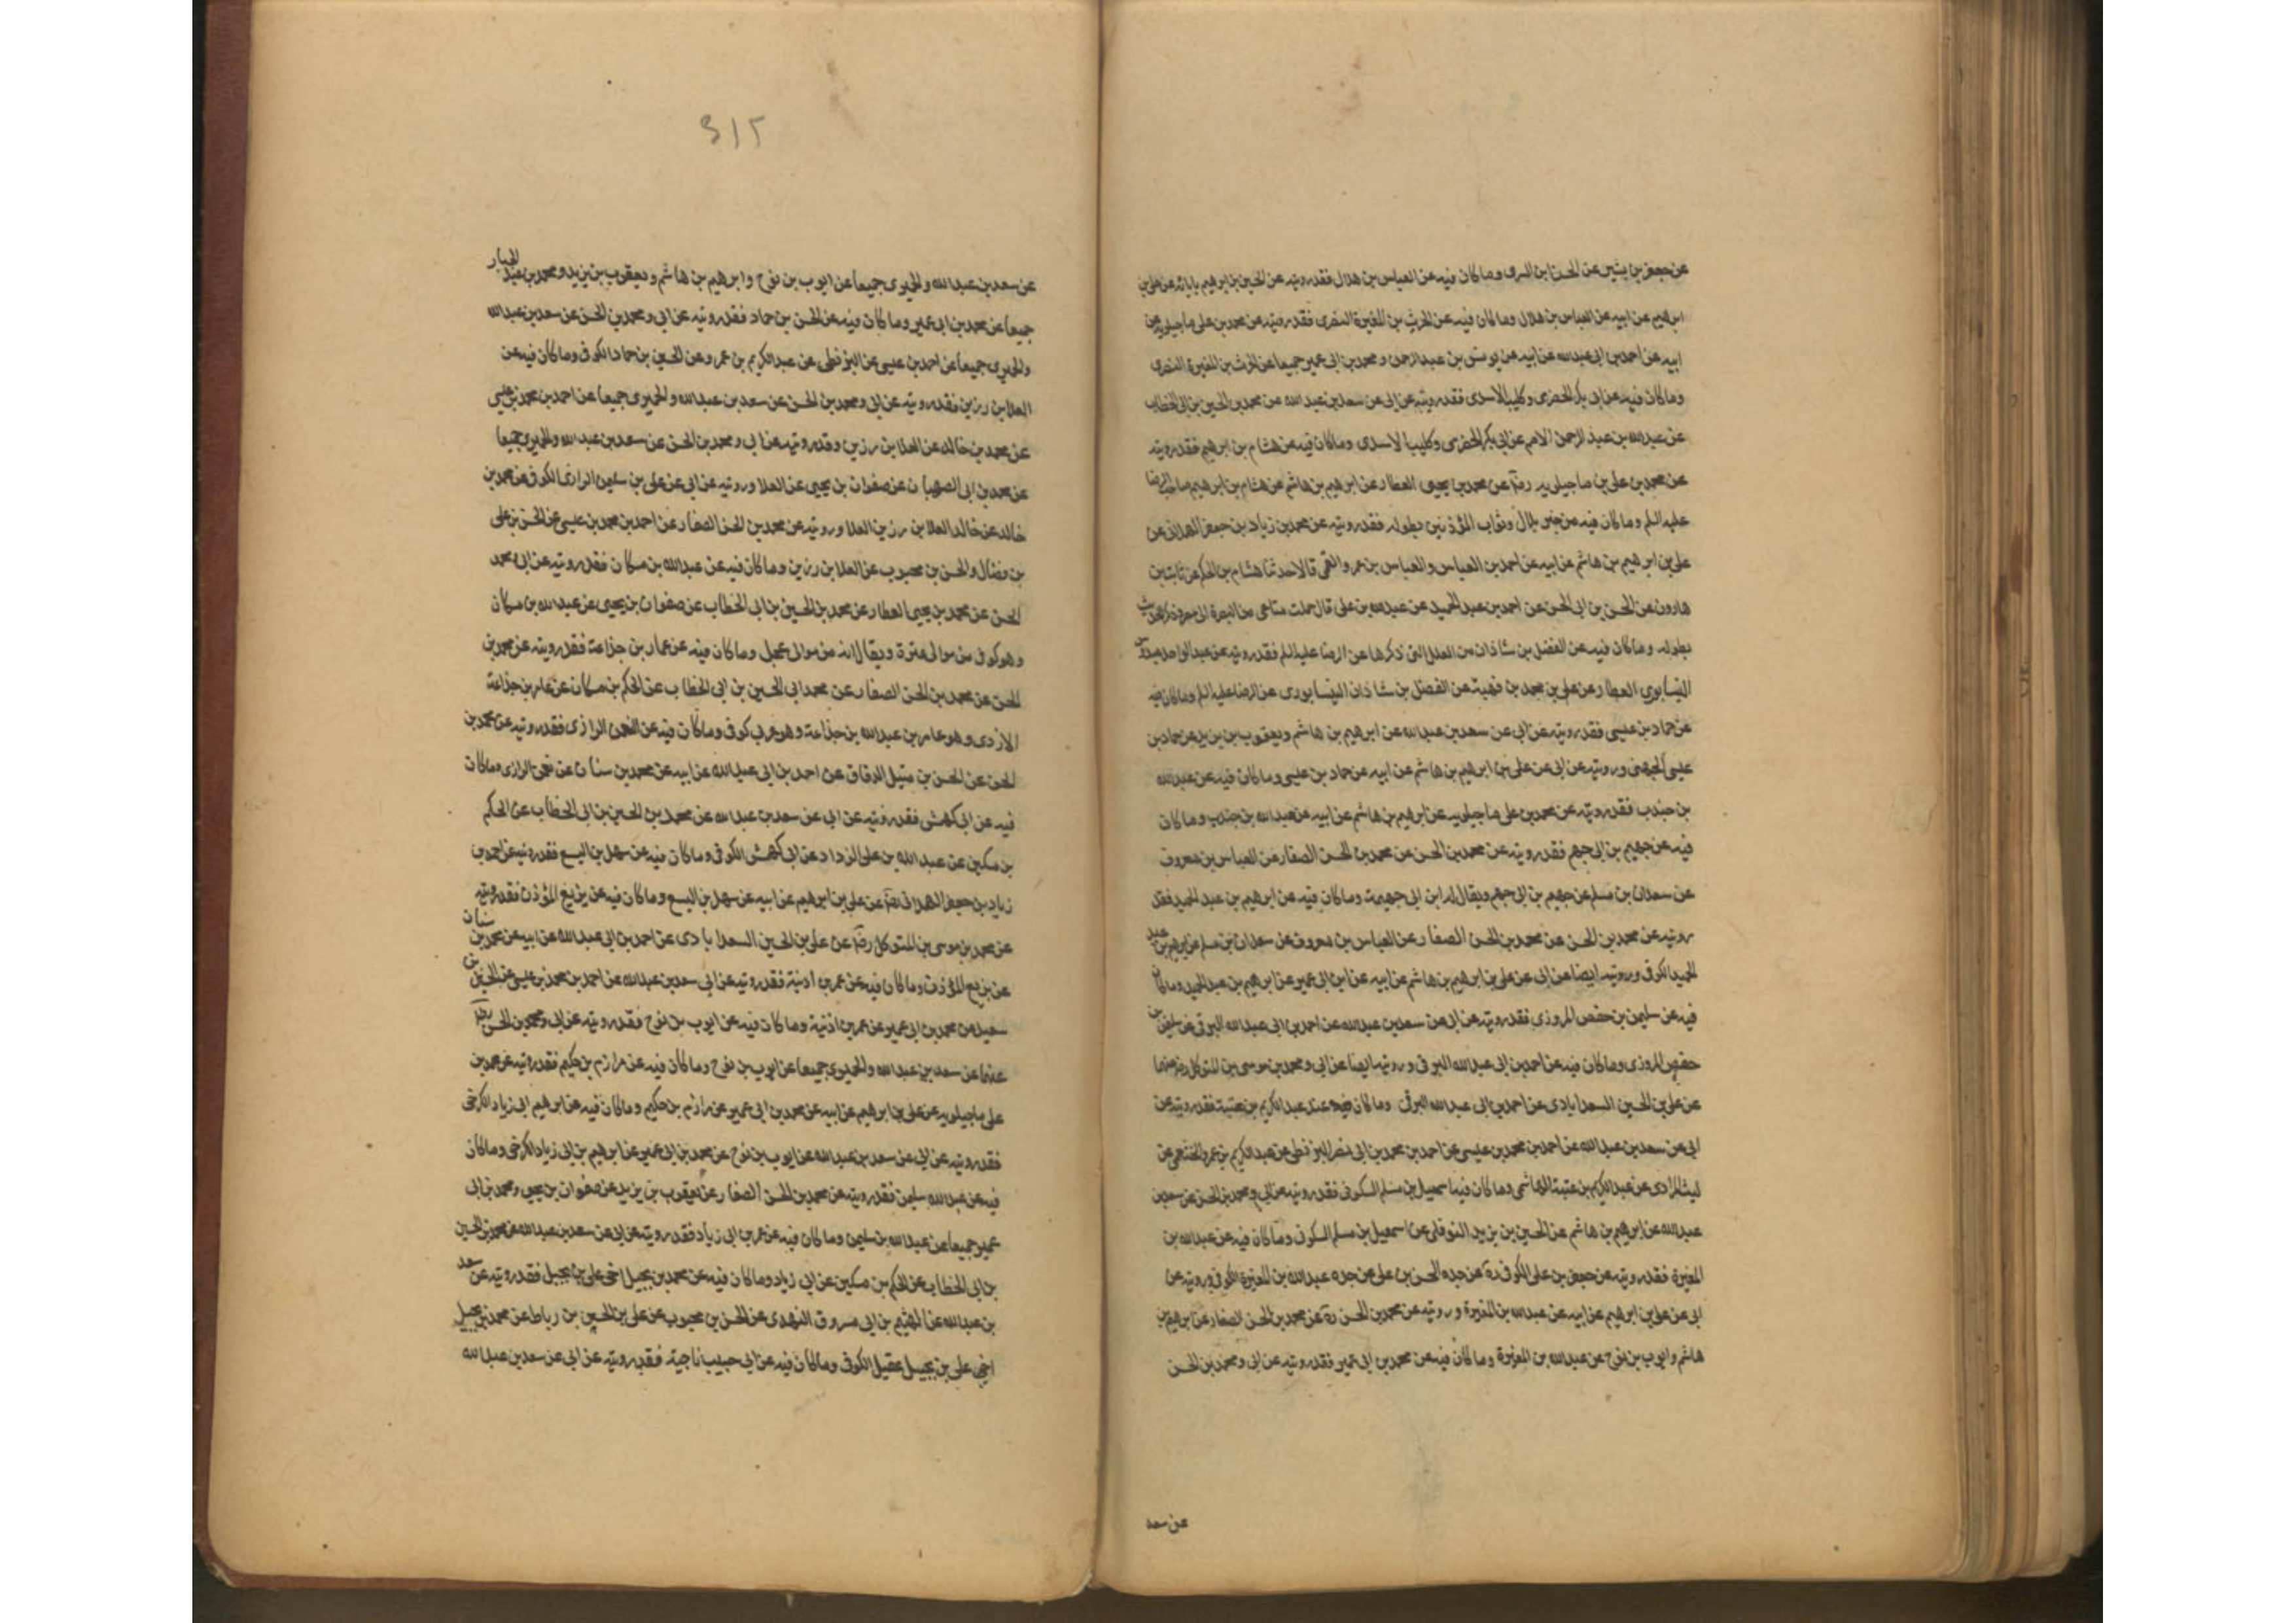 عن جعفر بن بشير عن الحسن ابن السرى وما كان فيه عن العباس بن هلال فقد رويته عن الحسين بن ابراهيم عن على بن
ابرهيم عن ابيه عن العباس بن هلال وما كان فيه عن الحرث بن المغيرة النصرى فقد رويته عن محمد بن على ماجيلويه عن
ابيه عن احمد بن ابى عبدالله عن ابيه عن يونس بن عبدالرحمن و محمد بن ابى عمير جميعا عن الحرث بن المغيرة النصرى
وما كان فيه عن ابى بكر الحضرمى وكليب الاسدى فقد رويته عن ابى عن سعد بن عبد الله عن محمد بن الحسين بن ابى الخطاب
عن عبدالله بن عبد الرحمن الاصم عن ابى بكر الحضرمى وكليب الاسدى وما كان فيه عن هشام بن ابرهيم فقد رويته
عن محمد بن على بن ماجيلويه عن محمد بن يحيى العطار عن ابرهيم بن هاشم عن هشام بن ابرهيم صاحب الرضا
عليه السلم وما كان فيه من خبر بلال وثواب المؤذنين بطوله فقد رويته عن محمد بن زياد بن جعفر الهمدانى عن
على بن ابرهيم بن هاشم عن ابيه عن احمد بن العباس والعباس بن عمرو الفقيمى قالا حدثنا هشام بن الحكم عن ثابت بن
هارون عن الحسن بن ابى الحسن عن احمد بن عبد الحميد عن عبدالله بن على قال حملت متاعى من البصرة الى مصر وذكر الحديث
بطوله وما كان فيه عن الفضل بن شاذان من العلل التى ذكرها عن الرضا عليه السلم فقد رويته عن عبدالواحد بن عبدوس
النيسابورى العطار عن على بن محمد بن قتيبة عن الفضل بن شاذان النيسابورى عن الرضا عليه السلم وما كان فيه
عن حماد بن عيسى فقد رويته عن ابى عن سعد بن عبدالله عن ابرهيم بن هاشم ويعقوب بن يزيد عن حماد بن
عيسى الجهنى ورويته عن ابى عن على بن ابرهيم بن هاشم عن ابيه عن حماد بن عيسى وما كان فيه عن عبدالله
بن جندب فقد رويته عن محمد بن على ماجيلويه عن ابرهيم بن هاشم عن ابيه عن عبدالله بن جندب وما كان
فيه عن جهيم بن ابى جهم فقد رويته عن محمد بن الحسن عن محمد بن الحسن الصفار عن العباس بن معروف
عن سعدان بن مسلم عن جهيم بن ابى جهم ويقال له ابن ابى جهيمة وما كان فيه عن ابرهيم بن عبد الحميد فقد
رويته عن محمد بن الحسن عن محمد بن الحسن الصفار عن العباس بن معروف عن سعدان بن مسلم عن ابرهيم بن عبد
الحميد الكوفى ورويته ايضا عن ابى عن على بن ابرهيم بن هاشم عن ابيه عن ابن ابى عمير عن ابرهيم بن عبد الحميد وما كان
فيه عن سليمن بن حفص المروزى فقد رويته عن ابى عن سعد بن عبدالله عن احمد بن ابى عبدالله البرقى عن سليمن بن
حفص المروزى وما كان فيه عن احمد بن ابى عبدالله البرقى و رويته ايضا عن ابى ومحمد بن موسى بن المتوكل
عن على بن الحسين السعدابادى عن احمد بن ابى عبدالله البرقى وما كان فيه عن عبدالكريم بن عتبة فقد رويته عن
ابى عن سعد بن عبدالله عن احمد بن محمد بن عيسى عن احمد بن محمد بن ابى نصر البزنطى عن عبدالكريم بن عمرو الخثعمى عن
ليث المرادى عن عبدالكريم بن عتبة الهاشمى وما كان فيه اسمعيل بن مسلم السكونى فقد رويته عن ابى ومحمد بن الحسن عن سعد بن
عبدالله عن ابرهيم بن هاشم عن الحسين بن يزيد النوفلى عن اسمعيل بن مسلم السكونى وما كان فيه عن عبدالله بن
المغيرة فقد رويته عن جعفر بن على الكوفى ره عن جده الحسن بن على عن جده عبدالله بن المغيرة الكوفى ورويته عن
ابى عن على بن ابرهيم عن ابيه عن عبدالله بن المغيرة ورويته عن محمد بن الحسن ره عن محمد بن الحسن الصفار عن ابرهيم بن
هاشم وايوب بن نوح عن عبدالله بن المغيرة وما كان فيه عن محمد بن ابى عمير فقد رويته عن ابى ومحمد بن الحسن
عن سعد
٣١٢
عن سعد بن عبدالله والحميرى جميعا عن ايوب بن نوح وابرهيم بن هاشم ويعقوب بن يزيد ومحمد بن عبد الجبار
جميعا عن محمد بن ابى عمير وما كان فيه عن الحسن بن حماد فقد رويته عن ابى ومحمد بن الحسن عن سعد بن عبدالله
والحميرى جميعا عن احمد بن عيسى عن البزنطى عن عبدالكريم بن عمر وعن الحسين بن حماد الكوفى وما كان فيه عن
العلا بن رزين فقد رويته عن ابى ومحمد بن الحسن عن سعد بن عبدالله والحميرى جميعا عن احمد بن محمد بن عيسى
عن محمد بن خالد عن العلا بن رزين وقد رويته عن ابى ومحمد بن الحسن عن سعد بن عبدالله والحميرى جميعا
عن محمد بن ابى الصهبان عن صفوان بن يحيى عن العلا ورويته عن ابى عن على بن سليمن الرازى الكوفى عن محمد بن
خالد عن خالد العلا بن رزين العلا ورويته عن محمد بن الحسن الصفار عن احمد بن محمد بن عيسى عن الحسن بن على
بن فضال والحسن بن محبوب عن العلا بن رزين وما كان فيه عن عبدالله بن مسكان فقد رويته عن ابى محمد
الحسن عن محمد بن يحيى العطار عن محمد بن الحسين بن ابى الخطاب عن صفوان بن يحيى عن عبدالله بن مسكان
وهو كوفى من موالى عنزة ويقال انه من موالى عجل وما كان فيه عن عمار بن جذاعة فقد رويته عن محمد بن
الحسن عن محمد بن الحسن الصفار عن محمد ابى الحسين بن ابى الخطاب عن الحكم بن مسكان عن عامر بن جذاعة
الازدى وهو عامر بن عبدالله بن جذاعة وهو عربى كوفى وما كان فيه عن النعمن الرازى فقد رويته عن محمد بن
الحسن عن الحسن بن متيل الدقاق عن احمد بن ابى عبدالله عن ابيه عن محمد بن سنان عن نعمن الرازى وما كان
فيه عن ابى كهمش فقد رويته عن ابى عن سعد بن عبدالله عن محمد بن الحسين بن ابى الخطاب عن الحكم
بن مسكين عن عبدالله بن على الزداد عن ابى كهمش الكوفى وما كان فيه عن سهل بن اليسع فقد رويته عن احمد بن
زياد بن جعفر الهمدانى عن على بن ابرهيم عن ابيه عن سهل بن اليسع وما كان فيه عن بزيع المؤذن فقد رويته
عن محمد بن موسى بن المتوكل عن على بن الحسين السعدابادى عن احمد بن ابى عبدالله عن ابيه عن محمد بن سنان
عن بزيع المؤذن وما كان فيه عن عمر بن اذنية فقد رويته عن ابى سعد بن عبدالله عن احمد بن محمد بن عيسى عن الحسين بن
سعيد عن محمد بن ابى عمير عن عمر بن اذنية وما كان فيه عن ايوب بن نوح فقد رويته عن ابى ومحمد بن الحسن
عنهما عن سعد بن عبدالله والحميرى جميعا عن ايوب بن نوح وما كان فيه عن مرازم بن حكيم فقد رويته عن محمد بن
على ماجيلويه عن على بن ابرهيم عن ابيه عن محمد بن ابى عمير عن مرازم بن حكيم وما كان فيه عن ابرهيم ابى زياد الكرخى
فقد رويته عن ابى عن سعد بن عبدالله عن ايوب بن نوح عن محمد بن ابى عمير عن ابرهيم بن ابى زياد الكرخى وما كان
فيه عن عبدالله سليمن فقد رويته عن محمد بن الحسن الصفار عن يعقوب بن يزيد عن صفوان بن يحيى ومحمد بن ابى
عمير جميعا عن عبدالله بن سليمن وما كان فيه عن عمر بن ابى زياد فقد رويته عن ابى عن سعد بن عبدالله عن محمد بن الحسين
بن ابى الخطاب عن الحكم بن مسكين عن ابى زياد وما كان فيه عن محمد بن بجيل اخى على بن بجيل فقد رويته عن سعد
بن عبدالله عن الهيثم بن ابى مسروق النهدى عن الحسن بن محبوب عن على بن الحسين بن رباط عن محمد بن بجيل
اخى على بن بجيل عقيل الكوفى وما كان فيه عن ابى حبيب ناجية فقد رويته عن ابى عن سعد بن عبدالله